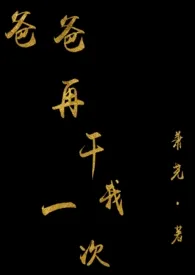 爸爸再干我一次
著